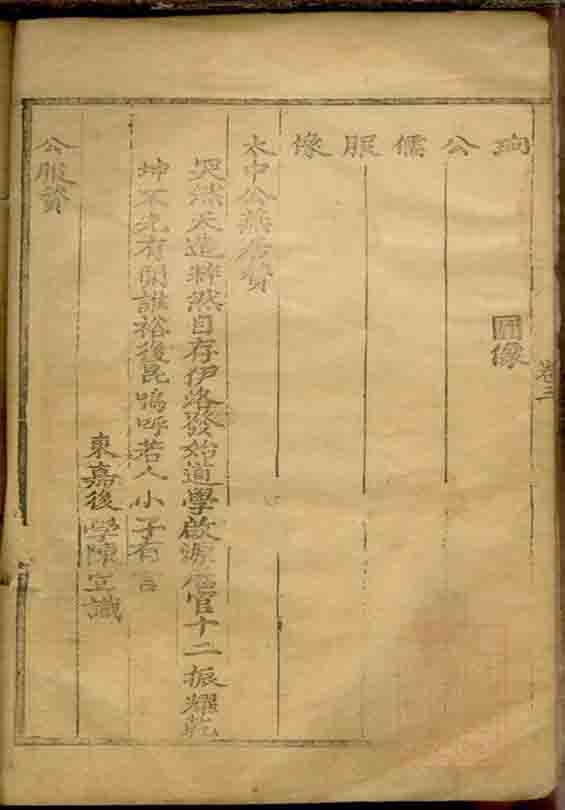 卷三
圖像
珦公儒服像
太中公燕居贊
天造粹然自存伊洛發始道學啟源歷官十二振耀乾
坤不先有開誰裕後昆嗚呼若人小子有言
東嘉後學陳宣識
公服贊